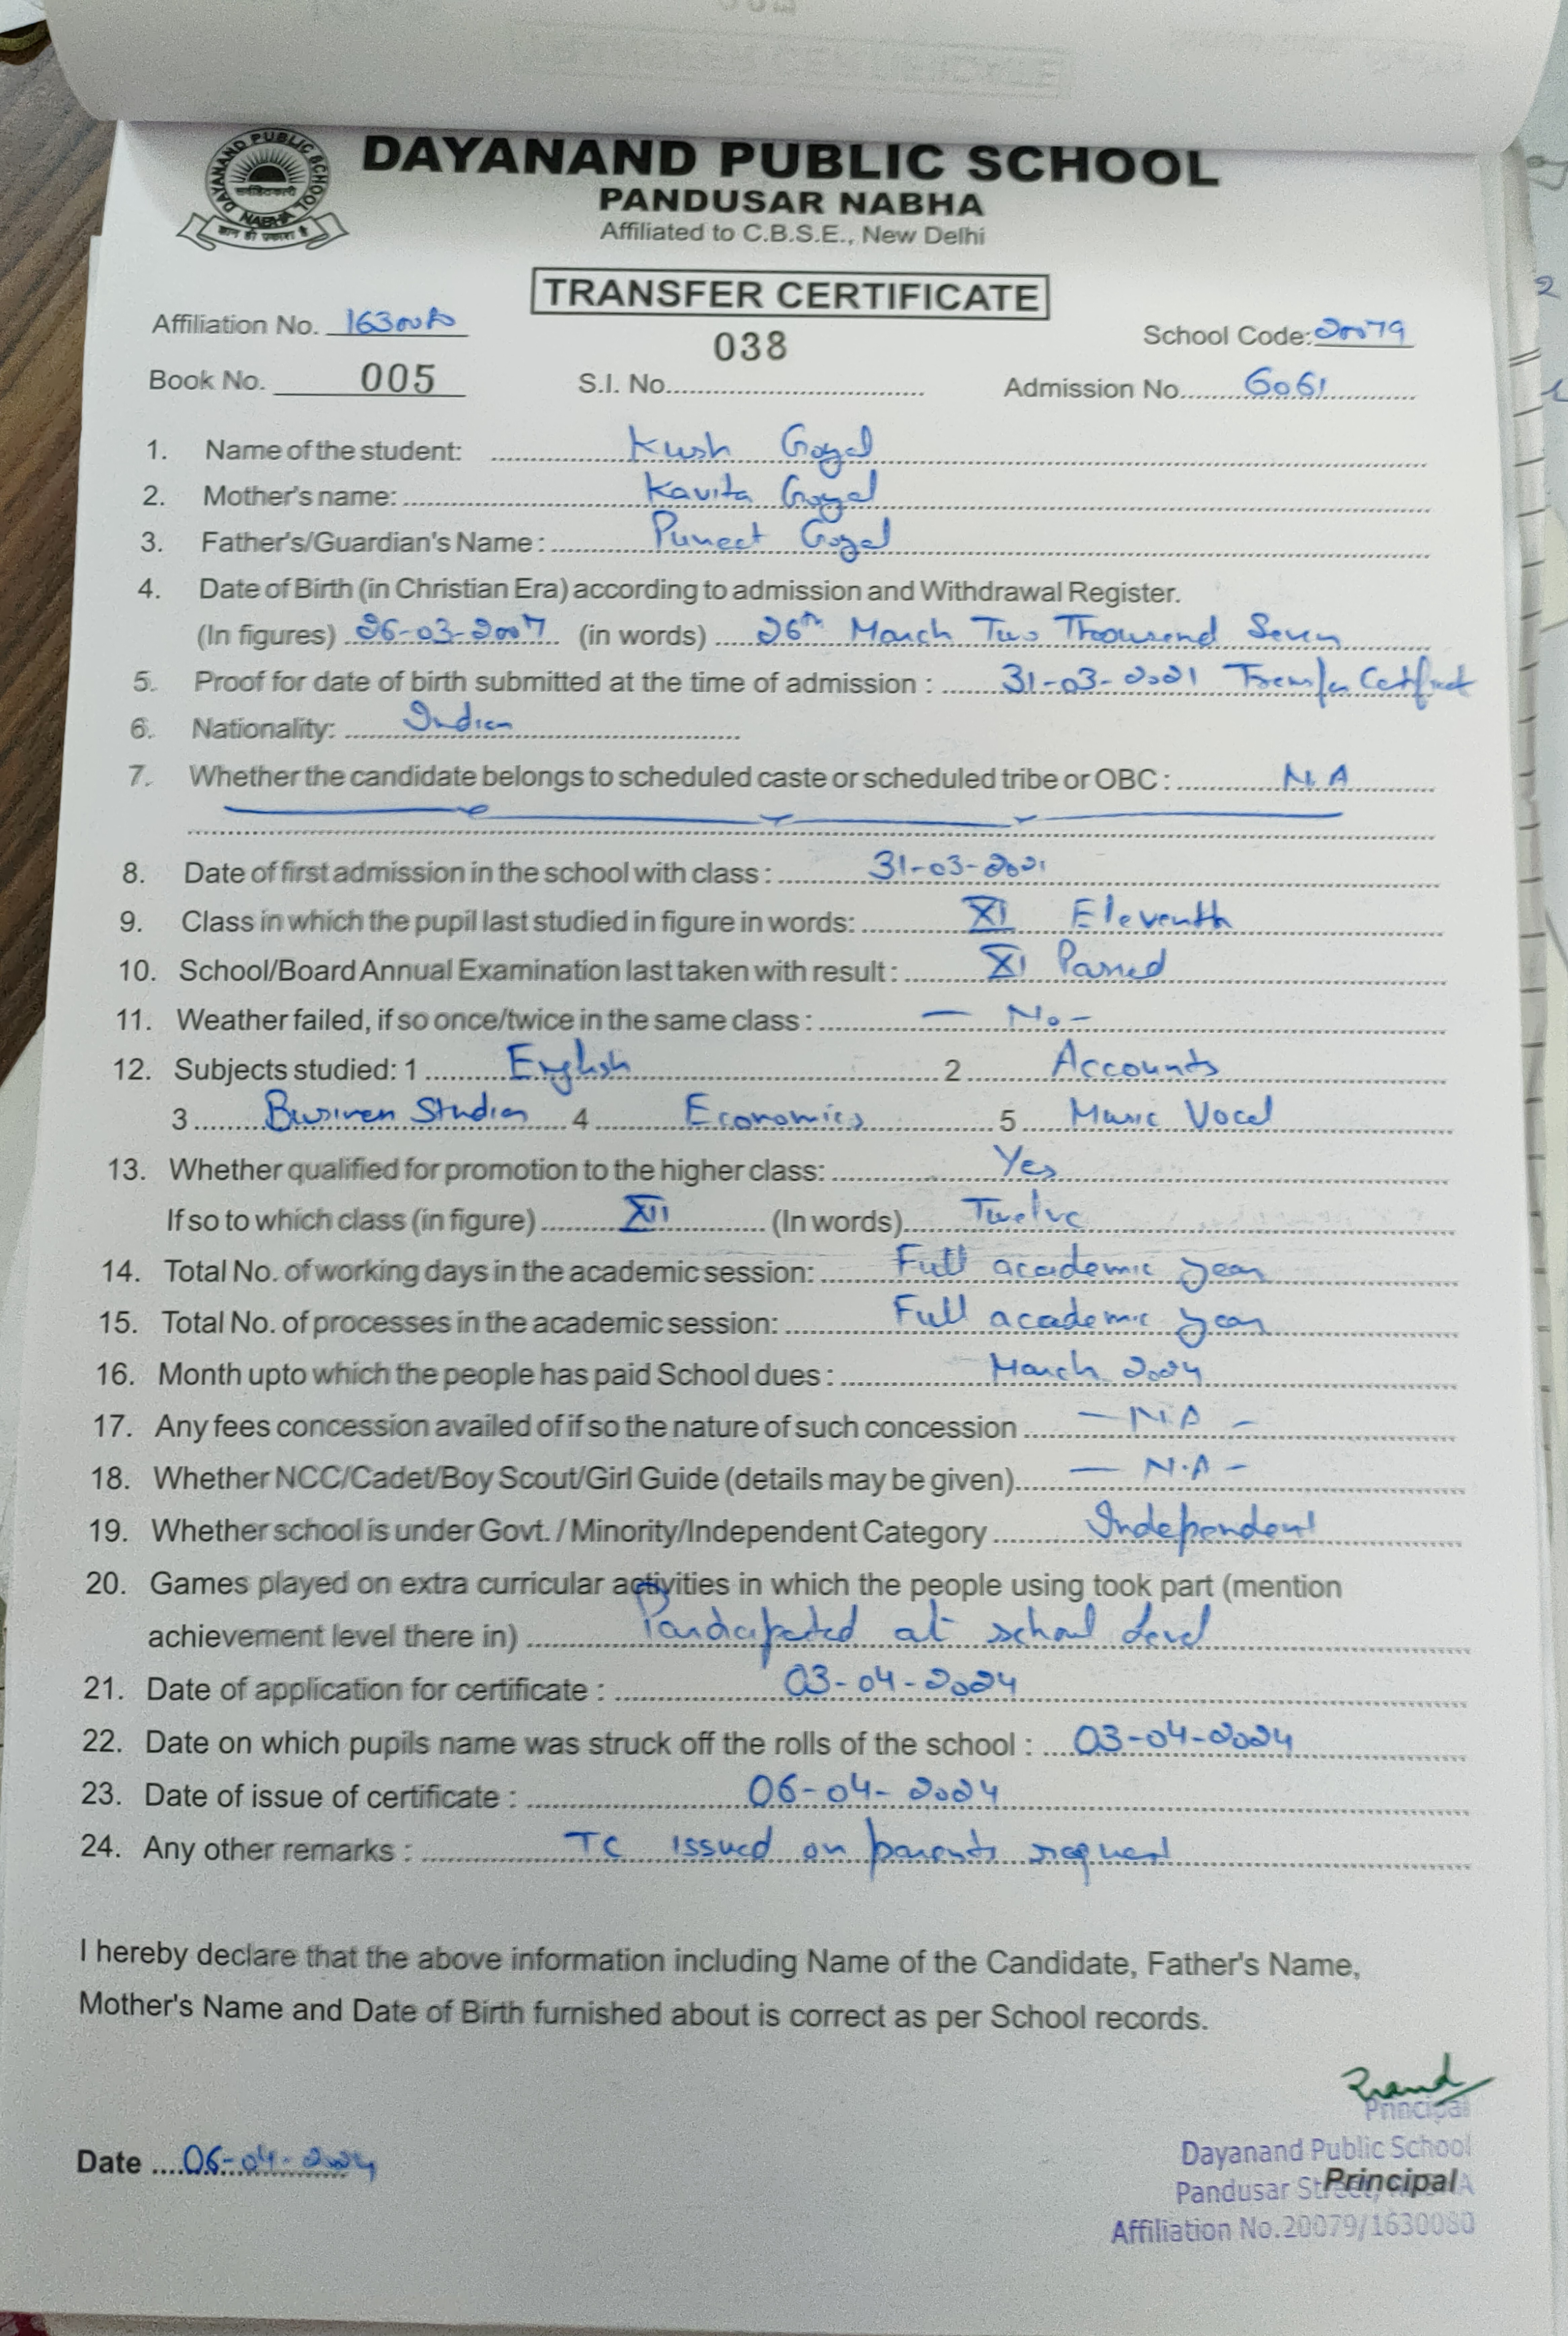 DAYANAND PUBLIC SCHOOL
NABHA
DAYANAND PUBLIC SCHOOL
PANDUSAR NABHA
Affiliated to C.B.S.E., New Delhi
TRANSFER CERTIFICATE
Affiliation No. 1630080
038
School Code: 20079
Book No. 005 S.I. No. Admission No. 6061
1. Name of the student: Kush Goyal
2. Mother's name: Kavita Goyal
3. Father's/Guardian's Name : Puneet Goyal
4. Date of Birth (in Christian Era) according to admission and Withdrawal Register.
(In figures) 26-03-2007 (in words) 26th March Two Thousand Seven
5. Proof for date of birth submitted at the time of admission : 31-03-2021 Transfer
6. Nationality: Indian
7. Whether the candidate belongs to scheduled caste or scheduled tribe or OBC : N.A
8. Date of first admission in the school with class : 31-03-2021
9. Class in which the pupil last studied in figure in words: XI Eleventh
10. School/Board Annual Examination last taken with result : XI Passed
11. Weather failed, if so once/twice in the same class : — No -
12. Subjects studied: 1 English 2 Accounts
3 Business Studies 4 Economics 5 Music Vocal
13. Whether qualified for promotion to the higher class: Yes
If so to which class (in figure) XII (In words) Twelve
14. Total No. of working days in the academic session: Full academic year
15. Total No. of processes in the academic session: Full academic year
16. Month upto which the people has paid School dues : March 2024
17. Any fees concession availed of if so the nature of such concession — N.A -
18. Whether NCC/Cadet/Boy Scout/Girl Guide (details may be given) — N.A -
19. Whether school is under Govt. / Minority/Independent Category Independent
20. Games played on extra curricular activities in which the people using took part (mention
achievement level there in) Participated at school level
21. Date of application for certificate : 03-04-2024
22. Date on which pupils name was struck off the rolls of the school : 03-04-2024
23. Date of issue of certificate : 06-04-2024
24. Any other remarks : TC issued on parents request
I hereby declare that the above information including Name of the Candidate, Father's Name,
Mother's Name and Date of Birth furnished about is correct as per School records.
Principal
Dayanand Public School
Date 06-04-2024
Pandusar Street,
Principal
Affiliation No.20079/1630080